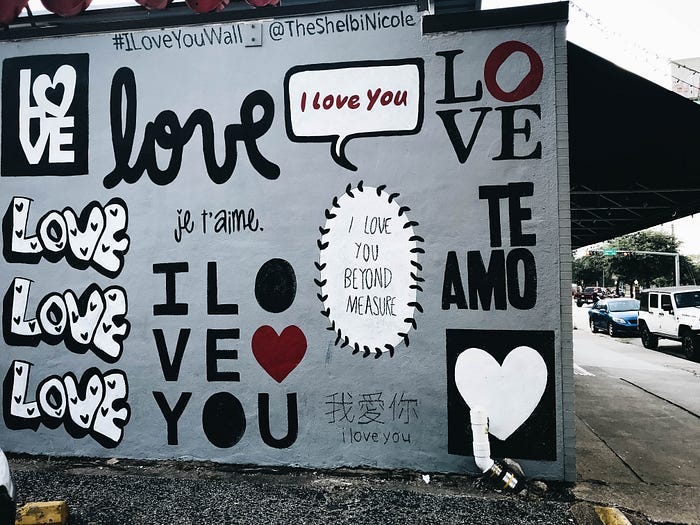 #ILoveYouWall : @TheShelbiNicole
LOVE
love
I love you
LO
VE
LOVE
LOVE
LOVE
je t'aime.
I LO
VE
YOU
I LOVE
YOU
BEYOND
MEASURE
TE
AMO
我愛你
i love you